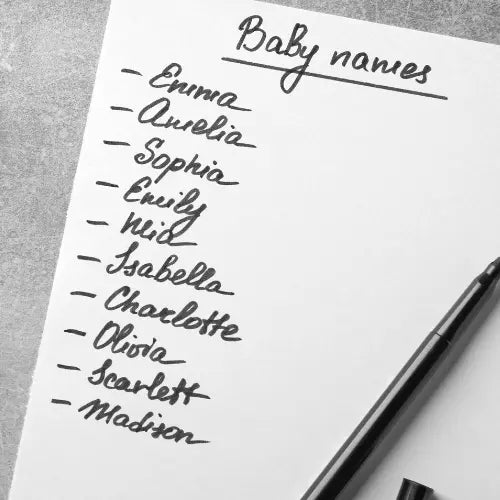 Baby names
- Emma
- Amelia
- Sophia
- Emily
- Mia
- Isabella
- Charlotte
- Olivia
- Scarlett
- Madison